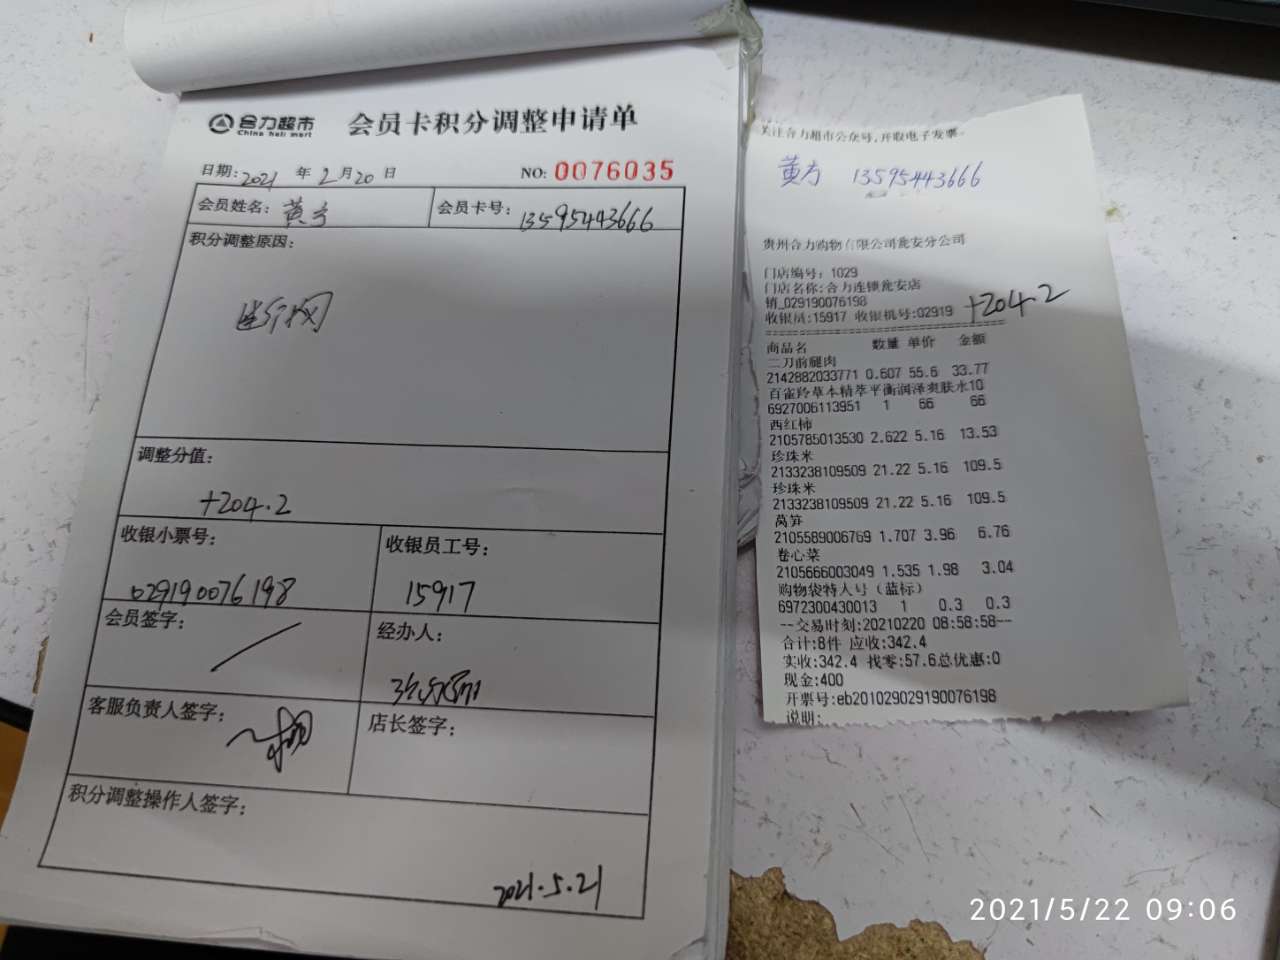 合力超市
China heli mart
会员卡积分调整申请单
日期: 2021 年 2 月 20 日
NO: 0076035
会员姓名: 黄方
会员卡号: 13595443666
积分调整原因:
调整分值:
+204.2
收银小票号:
029190076198
收银员工号:
15917
会员签字:
经办人:
客服负责人签字:
店长签字:
积分调整操作人签字:
2021.5.21
关注合力超市公众号,开取电子发票
黄方 13595443666
贵州合力购物有限公司瓮安分公司
门店编号: 1029
门店名称:合力连锁瓮安店
销_029190076198
收银员:15917 收银机号:02919
+204.2
商品名 数量 单价 金额
二刀前腿肉
2142882033771 0.607 55.6 33.77
百雀羚草本精萃平衡润泽爽肤水10
6927006113951 1 66 66
西红柿
2105785013530 2.622 5.16 13.53
珍珠米
2133238109509 21.22 5.16 109.5
珍珠米
2133238109509 21.22 5.16 109.5
莴笋
2105589006769 1.707 3.96 6.76
卷心菜
2105666003049 1.535 1.98 3.04
购物袋特大号（蓝标）
6972300430013 1 0.3 0.3
--交易时刻:20210220 08:58:58--
合计:8件 应收:342.4
实收:342.4 找零:57.6总优惠:0
现金:400
开票号:eb201029029190076198
说明:
2021/5/22 09:06